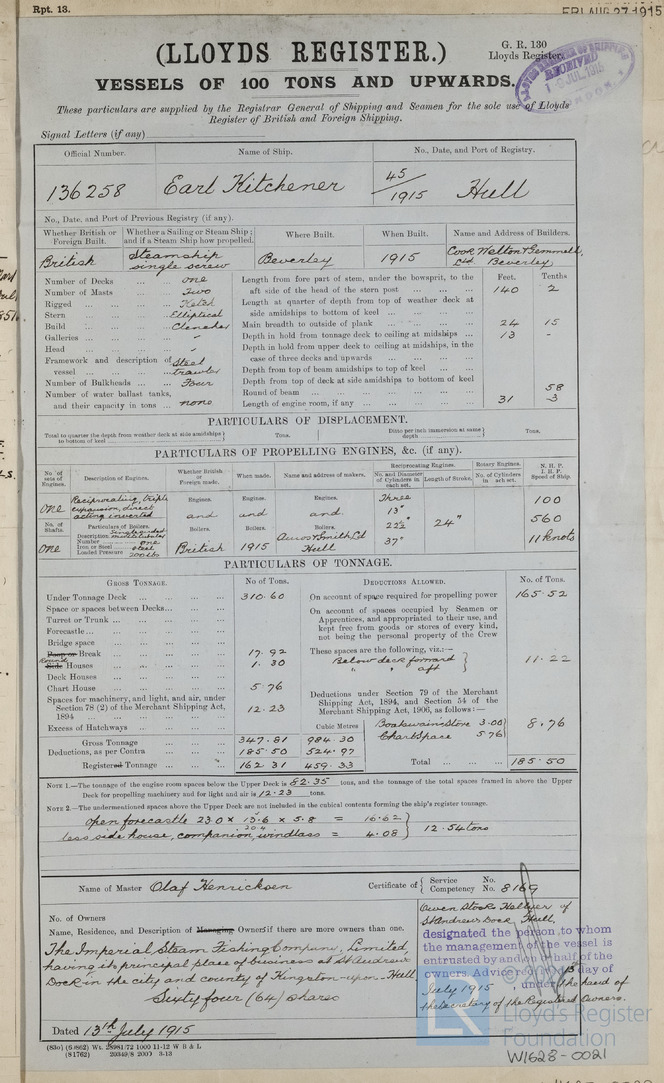 Rpt. 13.
FRI. AUG 27 1915
(LLOYDS REGISTER.)
G. R. 130
Lloyds Register.
VESSELS OF 100 TONS AND UPWARDS.
RECEIVED
JUL. 1915
These particulars are supplied by the Registrar General of Shipping and Seamen for the sole use of Lloyds
Register of British and Foreign Shipping.
Signal Letters (if any)
Official Number. Name of Ship. No., Date, and Port of Registry.
136258 Earl Kitchener 45/1915 Hull
No., Date, and Port of Previous Registry (if any).
Whether British or Foreign Built. Whether a Sailing or Steam Ship; and if a Steam Ship how propelled. Where Built. When Built. Name and Address of Builders.
British Steamship single screw Beverley 1915 Cook Welton & Gemmell, Ltd Beverley
Number of Decks ... one
Number of Masts ... Two
Rigged ... Ketch
Stern ... Elliptical
Build ... Clencher
Galleries ... "
Head ... "
Framework and description of vessel ... Steel trawler
Number of Bulkheads ... Four
Number of water ballast tanks, and their capacity in tons ... none
Feet. Tenths
Length from fore part of stem, under the bowsprit, to the aft side of the head of the stern post ... 140 2
Length at quarter of depth from top of weather deck at side amidships to bottom of keel ...
Main breadth to outside of plank ... 24 15
Depth in hold from tonnage deck to ceiling at midships ... 13 -
Depth in hold from upper deck to ceiling at midships, in the case of three decks and upwards ...
Depth from top of beam amidships to top of keel ...
Depth from top of deck at side amidships to bottom of keel
Round of beam ... 58
Length of engine room, if any ... 31 3
PARTICULARS OF DISPLACEMENT.
Total to quarter the depth from weather deck at side amidships to bottom of keel Tons. Ditto per inch immersion at same depth Tons.
PARTICULARS OF PROPELLING ENGINES, &c. (if any).
No. of sets of Engines. Description of Engines. Whether British or Foreign made. When made. Name and address of makers. Reciprocating Engines. Rotary Engines. N. H. P. I. H. P. Speed of Ship.
No. and Diameter of Cylinders in each set. Length of Stroke. No. of Cylinders in each set.
One Reciprocating, triple expansion, direct acting inverted Engines. Engines. Engines. Three 100
and and and 13" 560
No. of Shafts. Particulars of Boilers. Boilers. Boilers. Boilers. 22½" 24"
Description
Number one
Iron or Steel steel
Loaded Pressure 200 lbs
One British 1915 Hull 37" 11 knots
PARTICULARS OF TONNAGE.
GROSS TONNAGE. No of Tons. DEDUCTIONS ALLOWED. No. of Tons.
Under Tonnage Deck ... 310.60
Space or spaces between Decks...
Turret or Trunk ...
Forecastle ...
Bridge space
Poop or Break ... 17.92
Round
Side Houses ... 1.30
Deck Houses ...
Chart House ... 5.76
Spaces for machinery, and light, and air, under Section 78 (2) of the Merchant Shipping Act, 1894 ... 12.23
Excess of Hatchways ...
Gross Tonnage 347.81 984.30
Deductions, as per Contra ... 185.50 524.97
Registered Tonnage ... 162.31 459.33
Cubic Metres
On account of space required for propelling power 165.52
On account of spaces occupied by Seamen or Apprentices, and appropriated to their use, and kept free from goods or stores of every kind, not being the personal property of the Crew
These spaces are the following, viz.:—
Below deck forward
" " aft 11.22
Deductions under Section 79 of the Merchant Shipping Act, 1894, and Section 54 of the Merchant Shipping Act, 1906, as follows:—
Boatswains Store 3.00
Chart Space 5.76 8.76
Total ... 185.50
NOTE 1.—The tonnage of the engine room spaces below the Upper Deck is 82.35 tons, and the tonnage of the total spaces framed in above the Upper
Deck for propelling machinery and for light and air is 12.23 tons.
NOTE 2.—The undermentioned spaces above the Upper Deck are not included in the cubical contents forming the ship's register tonnage.
Open forecastle 23.0 x 13.6 x 5.8 = 16.62
less side house, companion, windlass = 4.08 12.54 tons
Name of Master Olaf Henricksen Certificate of Service No. Competency No. 8169
No. of Owners
Name, Residence, and Description of Managing Owners if there are more owners than one.
The Imperial Steam Fishing Company, Limited
having its principal place of business at St Andrews
Dock in the city and county of Kingston-upon-Hull
Sixty four (64) shares
Owen Stooks Hellyer of
St Andrews Dock, Hull,
designated the person to whom
the management of the vessel is
entrusted by and on behalf of the
owners. Advice received day of
July 1915, under the hand of
the secretary of the Registered Owners.
Dated 13th July 1915
Lloyd's Register
Foundation
W1628-0021